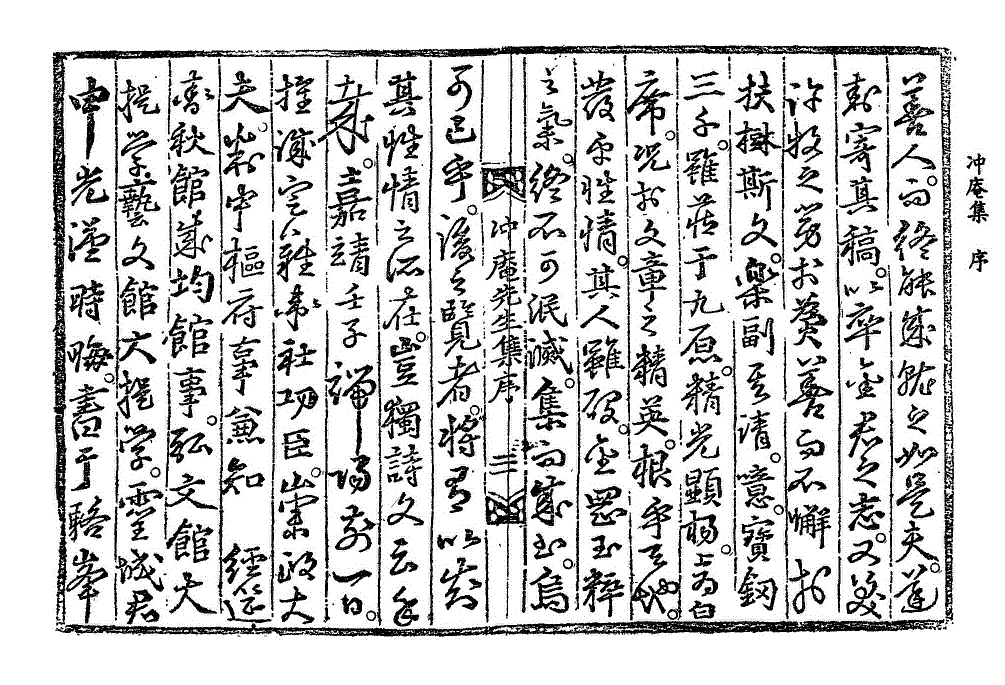 冲庵集 序
善人而終能成就之如是夫遂
書寄其稿以卒金君之志又
許牧之勞於善而不懈於
扶樹斯文樂副其請噫寶釼
三雖于九原精光顯揚上爲白
况於文章之精英根乎天地
發乎性情其人雖歿金玉粹
之氣終不可泯滅集而成書烏
冲庵先生集序 三
可已乎後之覽者將有以知
其性情之所在豈獨詩文云乎
哉嘉靖壬子端陽前一日
推誠定難衛社功臣崇政大
夫判中樞府事兼知 經筵
春秋館成均館事弘文館大
提學藝文館大提學靈城君
申光漢時晦書于駱峯